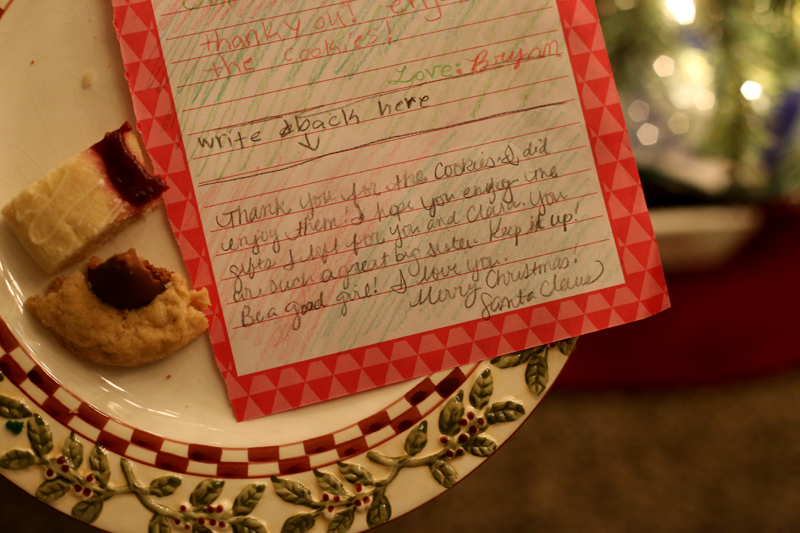 thankyou! enjoy
the cookies!
Love: Brynn
write back here
Thank you for the cookies. I did
enjoy them! I hope you enjoy the
gifts I left for you and Clara. You
are such a great big sister. Keep it up!
Be a good girl! I love you.
Merry Christmas!
Santa Claus